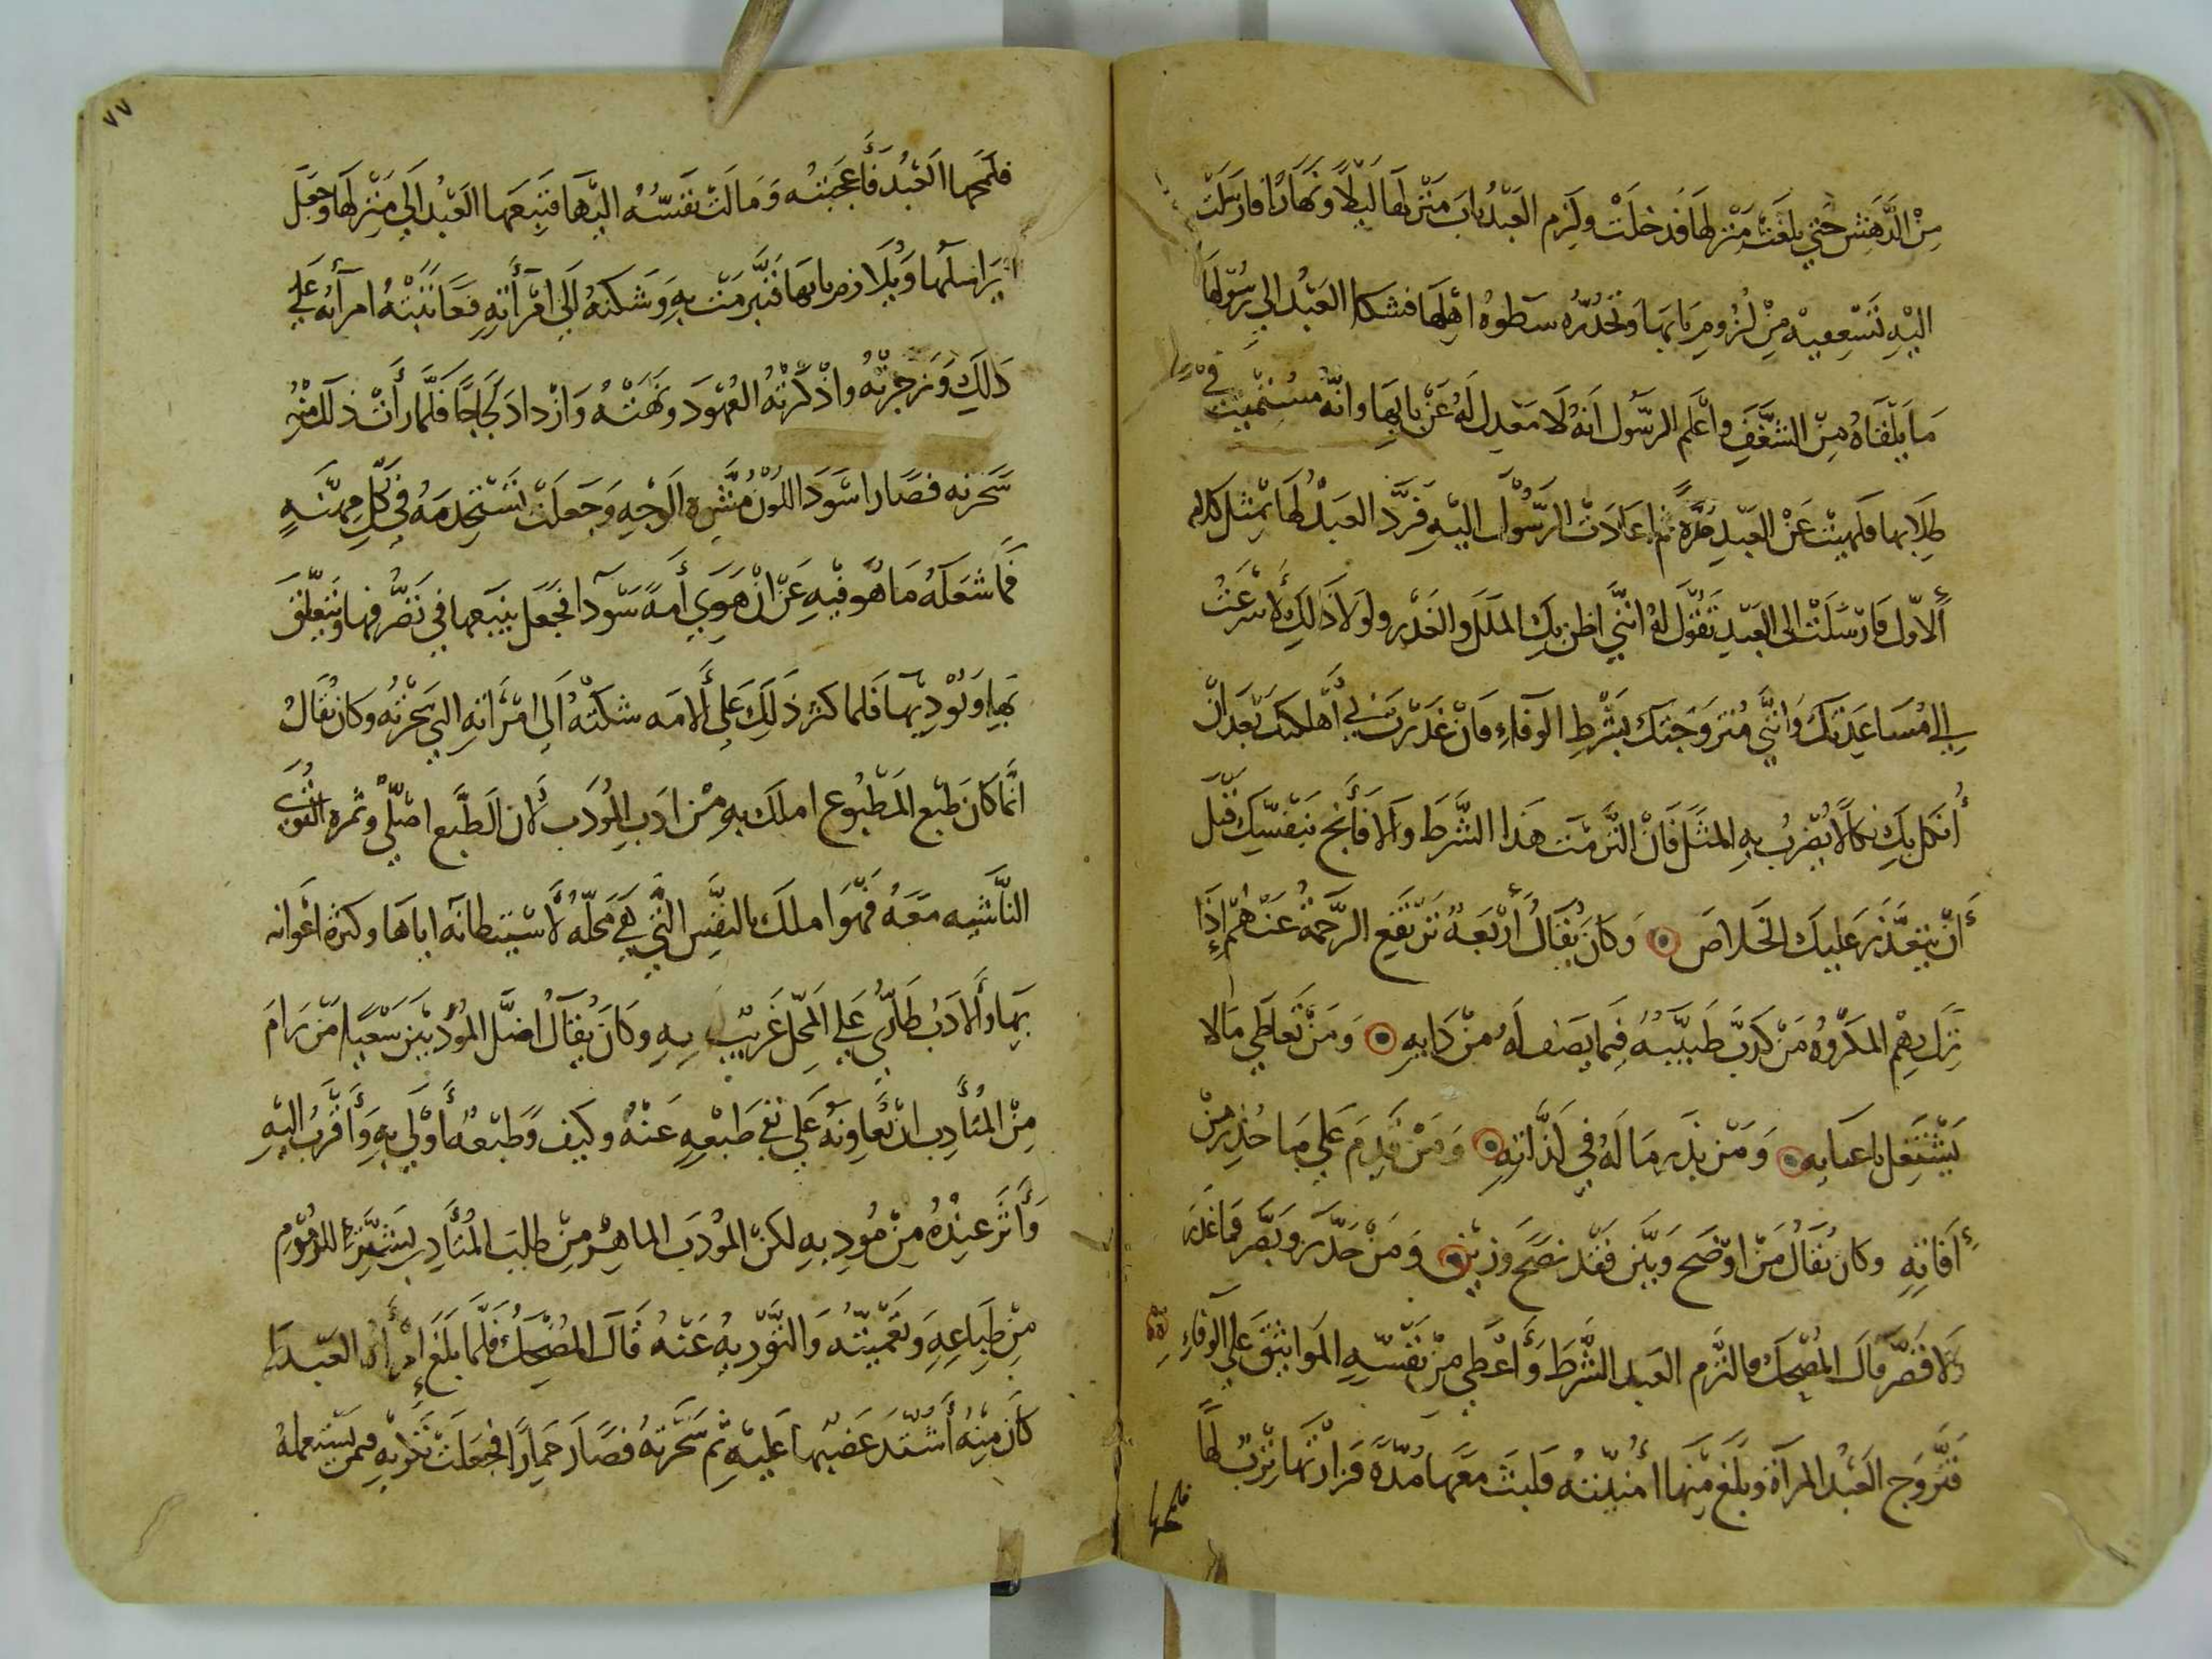 من الدهش حتي بلغت منزلها فدخلت ولزم العبد باب منزلها ليلا ونهارا فارسلت
اليه تستعفيه من لزوم بابها وتحذره سطوه اهلها فشكا العبد الي رسولها
ما يلقاه من الشغف واعلم الرسول انه لا معدل له عن بابها وانه مستميت في
طلابها فلهيت عن العبد مرة ثم اعادت الرسول اليه فرد العبد لها بمثل كلامه
الاول فارسلت الى العبد تقول له انني اظن بك الملل والغدر ولولا ذلك لأسرعت
الي مساعدتك وانني متزوجتك بشرط الوفاء فان غدرت بي أهلكتك بعد ان
أنكل بك نكالا يضرب به المثل فان التزمت هذا الشرط والا فأنج بنفسك قبل
أن يتعذر عليك الخلاص وكان يقال أربعة ترتفع الرحمة عنهم إذا
نزل بهم المكروه من كذب طبيبه فيما يصف له من دايه ومن تعاطي مالا
يشتغل باعبايه ومن بذر ماله في لذاته ومن قدم علي ما حذر من
أفاته وكان يقال من اوضح وبين فقد نصح وزين ومن حذر وبصر فما غدر
ولا قصر قال المضحك فالتزم العبد الشرط وأعطي من نفسه المواثيق علي الوفاء
فتزوج العبد المرأة وبلغ منها أمنيته فلبث معها مدة فزارتها ترب لها
فلمحها
٧٧
فلمحها العبد فأعجبته ومالت نفسه اليها فتبعها العبد الي منزلها وجعل
يراسلها ويلازم بابها فتبرمت به وشكته الي امرأته فعاتبته امرأته علي
ذلك وزجرته واذكرته العهود ونهته وازداد لجاجا فلما رأت ذلك منه
سحرته فصار اسود اللون مشره الوجه وجعلت تستخدمه في كل مهنة
فما شغله ما هو فيه عن ان هوي أمة سودا فجعل يتبعها في تصرفها ويتعلق
بها ويوديها فلما كثر ذلك على ألامه شكته الى امرأته التي سحرته وكان يقال
انما كان طبع المطبوع املك به من ادب المودب لان الطبع اصلي وثمره القوي
الناشيه معه فهو املك بالنفس التي هي محله لأستيطانه اياها وكثرة اعوانه
بها وألادب طاري علي المحل غريب به وكان يقال اضل المودبين سعيا من رام
من المتأدب ان يعاونه علي نفي طبعه عنه وكيف وطبعه أولي به وأقرب اليه
وأثر عنده من مودبه لكن المودب الماهر من طلب المتأدب بستر المذموم
من طباعه وتعميته والتوريه عنه قال المضحك فلما بلغ امرأة العبد ما
كان منه أشتد غضبها عليه ثم سحرته فصار حمارا فجعلت تكريه فمن يستعمله